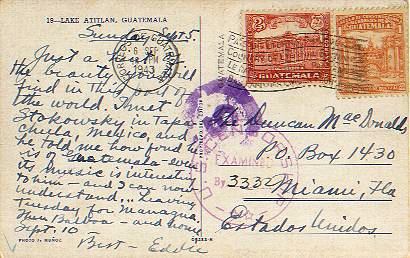 18—LAKE ATITLAN, GUATEMALA
Sunday, Sept 5.
Just a hint of
the beauty you will
find in this part of
the world. I met
Stokowsky in Tapa-
chula, Mexico, and
he told me how fond he
is of Guatemala - even
its music is interesting
to him - and I can now
understand... Leaving
Tuesday for Managua,
then Balboa - and home
Sept. 10
Best - Eddie
PHOTO by MUÑOZ
6 SEP
1943
GUATEMALA
GUATEMALA
Duncan MacDonald
P.O. Box 1430
Miami, Fla
Estados Unidos
EXAMINED
By 3332